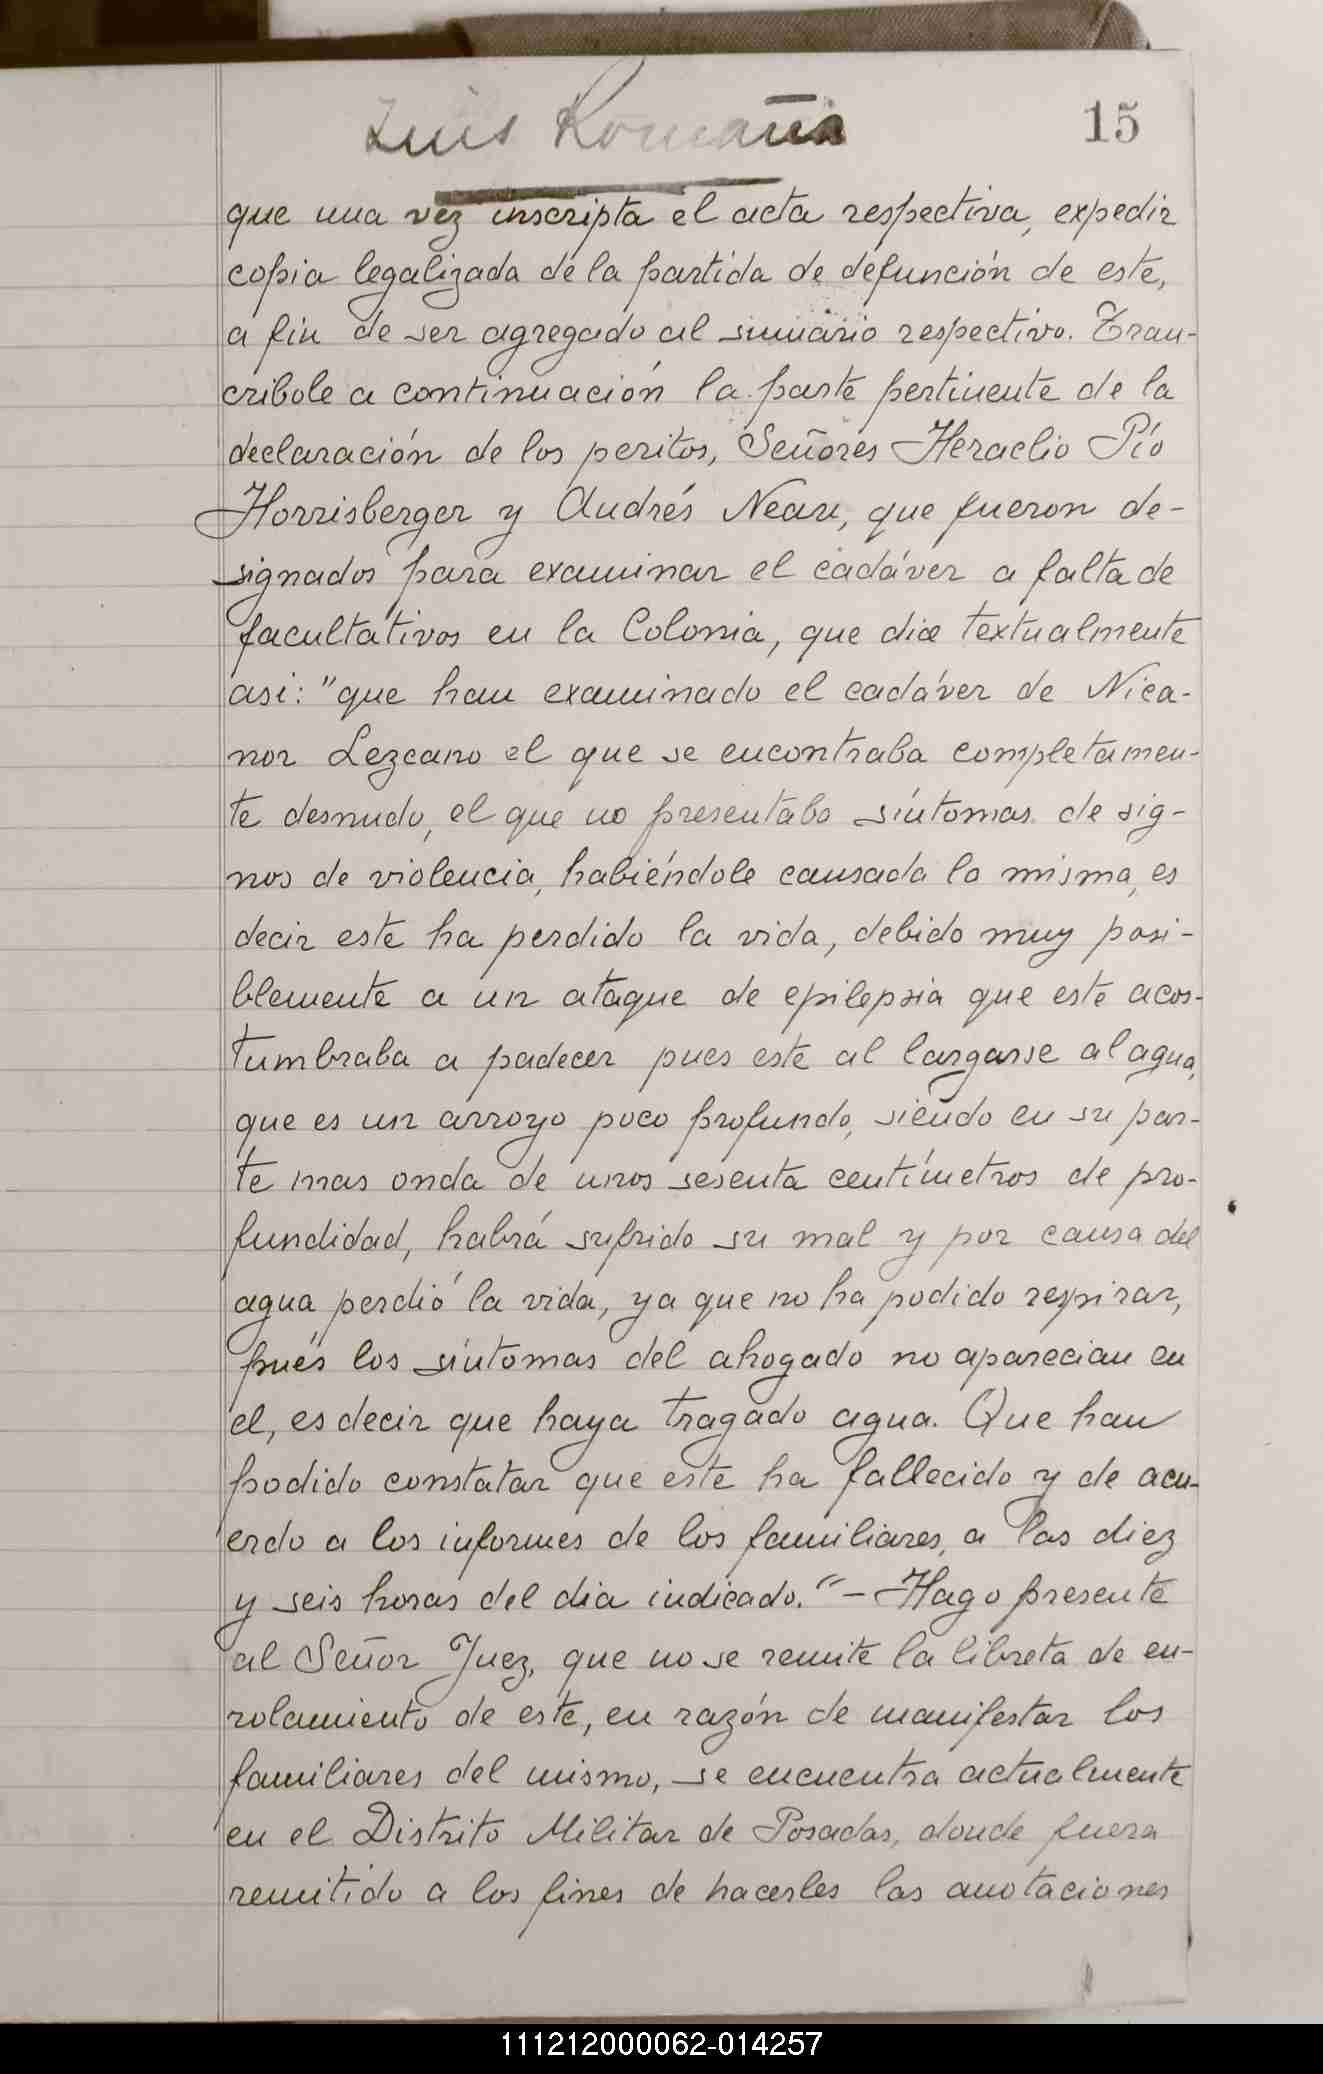 Luis Romaña
15
que una vez inscripta el acta respectiva, expedir
copia legalizada de la partida de defunción de este,
a fin de ser agregado al sumario respectivo. Tran-
cribole a continuación la parte pertinente de la
declaración de los peritos, Señores Heraclio Pío
Horrisberger y Andrés Near, que fueron de-
signados para examinar el cadáver a falta de
facultativos en la Colonia, que dice textualmente
asi: "que han examinado el cadáver de Nica-
nor Lezcano el que se encontraba completamen-
te desnudo, el que no presentaba síntomas de sig-
nos de violencia, habiéndole causada la misma, es
decir este ha perdido la vida, debido muy posi-
blemente a un ataque de epilepsia que este acos-
tumbraba a padecer pues este al largarse al agua,
que es un arroyo poco profundo, siendo en su par-
te mas onda de unos sesenta centímetros de pro-
fundidad, habrá sufrido su mal y por causa del
agua perdió la vida, ya que no ha podido respirar,
pués los síntomas del ahogado no aparecian en
el, es decir que haya tragado agua. Que han
podido constatar que este ha fallecido y de acu-
erdo a los informes de los familiares, a las diez
y seis horas del dia indicado." - Hago presente
al Señor Juez, que no se remite la libreta de en-
rolamiento de este, en razón de manifestar los
familiares del mismo, se encuentra actualmente
en el Distrito Militar de Posadas, donde fuera
remitido a los fines de hacerles las anotaciones
111212000062-014257